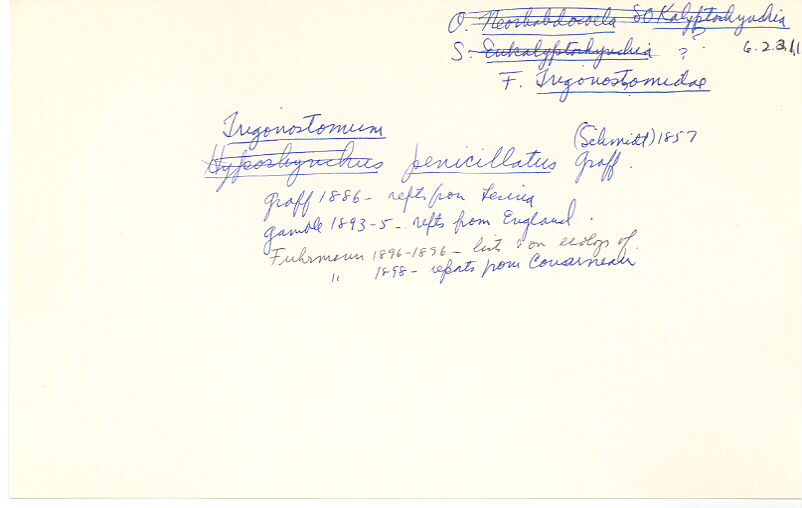 O. Neorhabdocoela SO Kalyptorhynchia
S. Eukalyptorhynchia ? ?
6.2.2.11
F. Trigonostomidae
Trigonostomum (Schmidt) 1857
Hyporhynchus penicillatus Graff.
Graff 1886 - repts from Lesina
Gamble 1893-5 - repts from England.
Fuhrmann 1896-1896 - lists & on ecology of.
" 1898 - reports from Concarneau